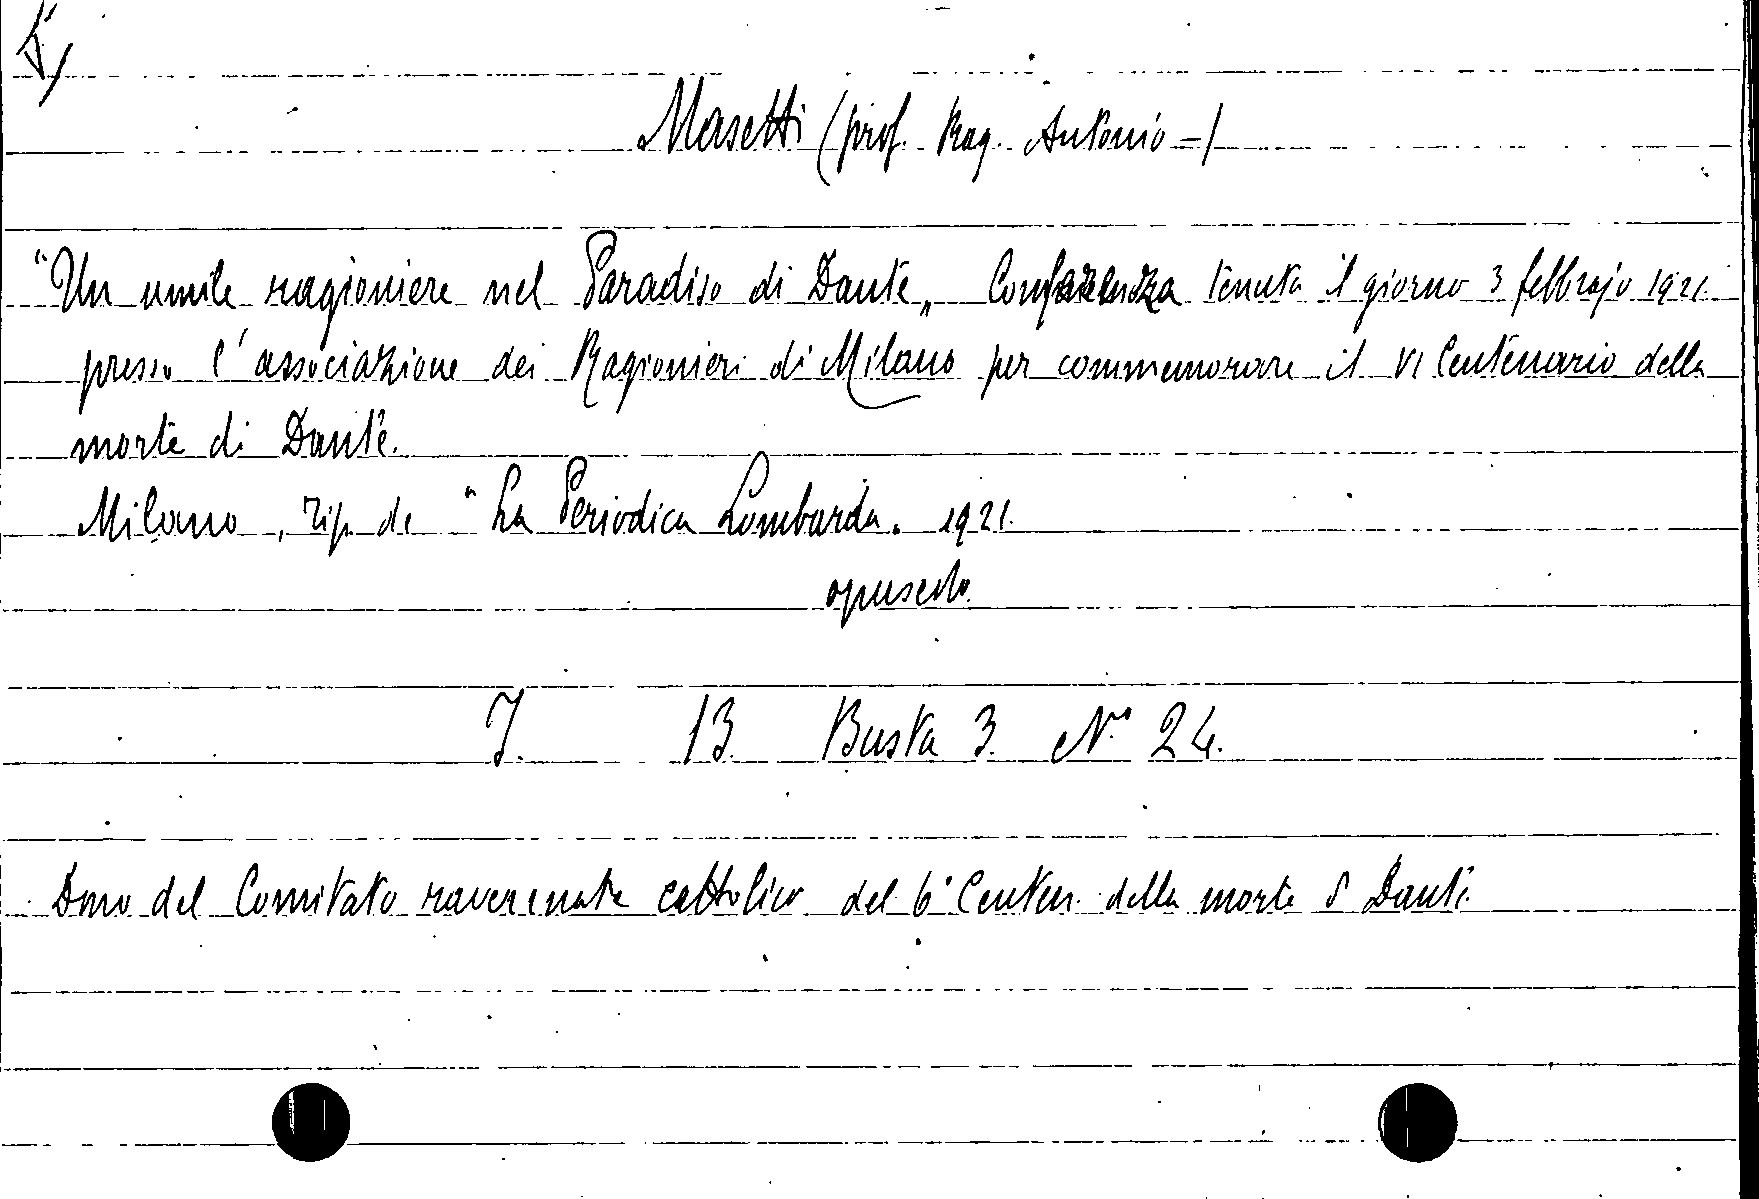 Masetti (prof. Rag. Antonio =)
"Un umile ragioniere nel Paradiso di Dante„ Conferenza tenuta il giorno 3 febbrajo 1921.
presso l'associazione dei Ragionieri di Milano per commemorare il VI Centenario della
morte di Dante.
Milano, Tip. de "La Periodica Lombarda. 1921.
opuscolo.
I. 13. Busta 3. N.° 24.
Dono del Comitato ravennate cattolico del 6° Centen. della morte d Dante.